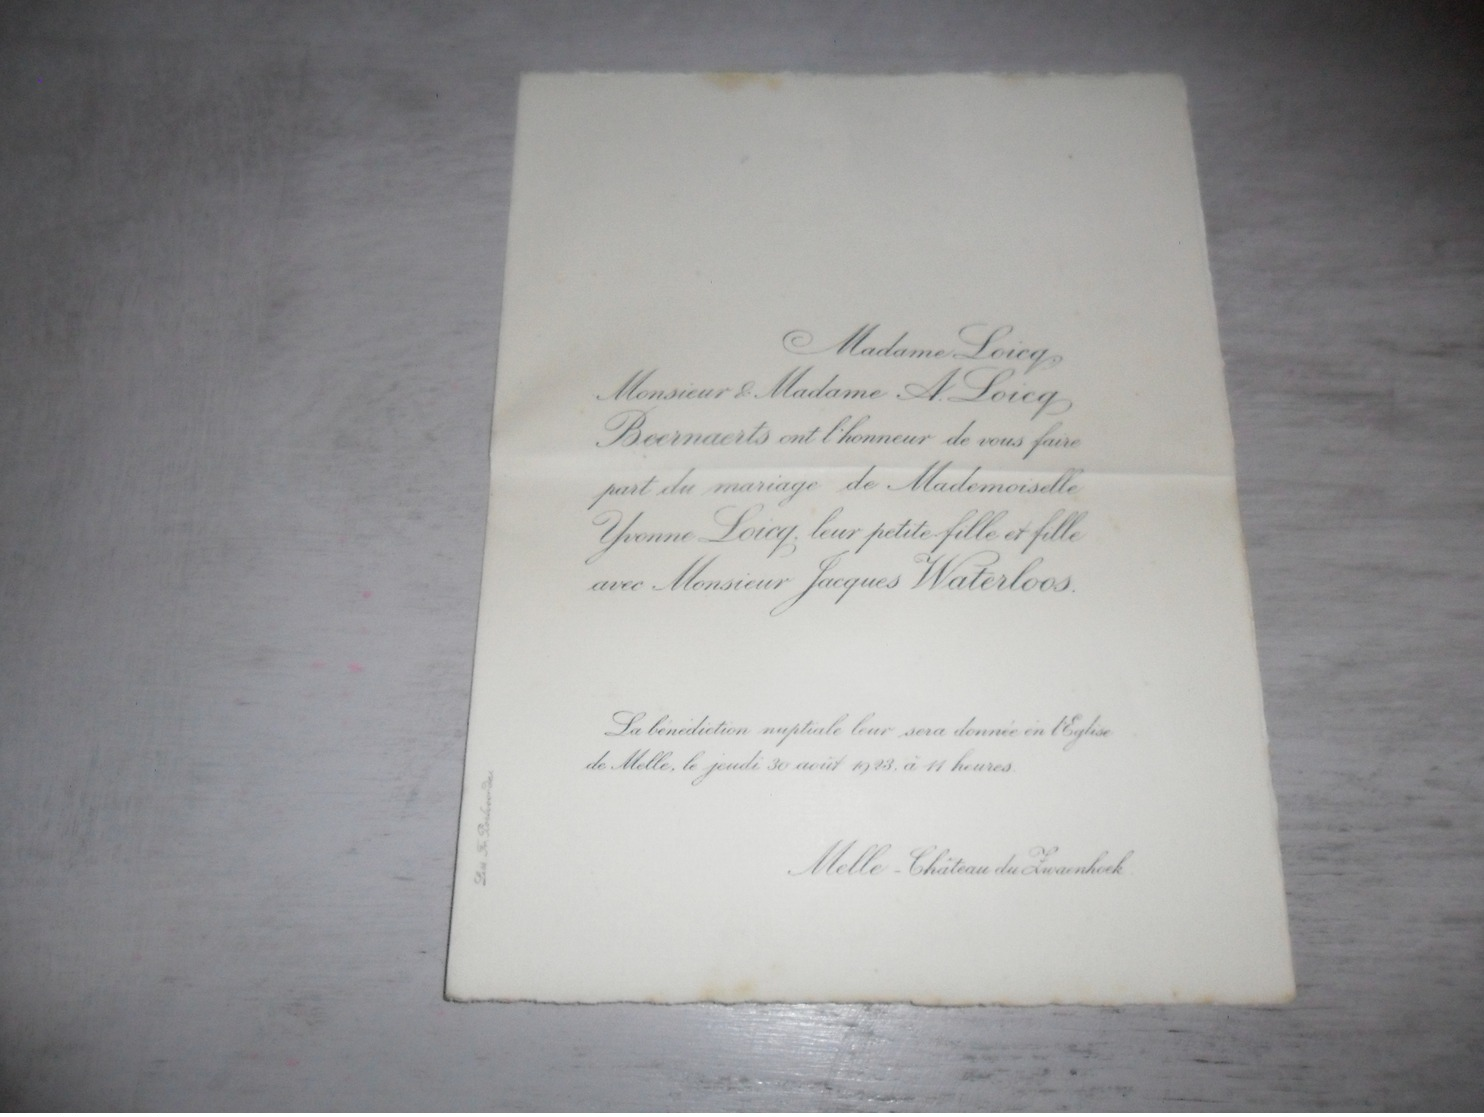 Madame Loicq,
Monsieur & Madame A. Loicq
Beernaerts ont l'honneur de vous faire
part du mariage de Mademoiselle
Yvonne Loicq, leur petite-fille et fille
avec Monsieur Jacques Waterloos.
La bénédiction nuptiale leur sera donnée en l'Eglise
de Melle, le jeudi 30 août 1923, à 11 heures.
Melle - Château du Zwaenhoek.